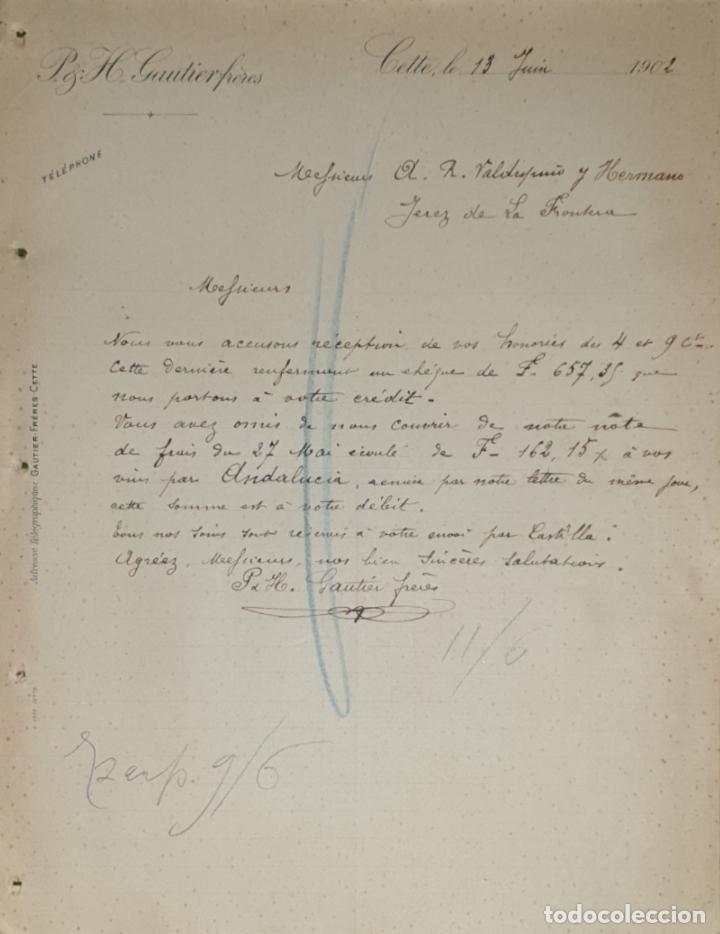 P. & H. Gautier frères
Cette, le 13 Juin 1902
TÉLÉPHONE
Messieurs A. R. Valdespino y Hermano
Jerez de La Frontera
Messieurs
Nous vous accusons réception de vos honorées des 4 et 9 Ct.
Cette dernière renfermant un chèque de F. 657,35 que
nous portons à votre crédit.
Vous avez omis de nous couvrir de notre note
de frais du 27 Mai écoulé de F. 162,15 à vos
vins par Andalucia, remise par notre lettre du même jour,
cette somme est à votre débit.
Tous nos soins sont réservés à votre envoi par Castilla.
Agréez, Messieurs, nos bien sincères salutations.
P. & H. Gautier frères
11/6
9/6
Adresse Télégraphique GAUTIER-FRÈRES CETTE
todocoleccion